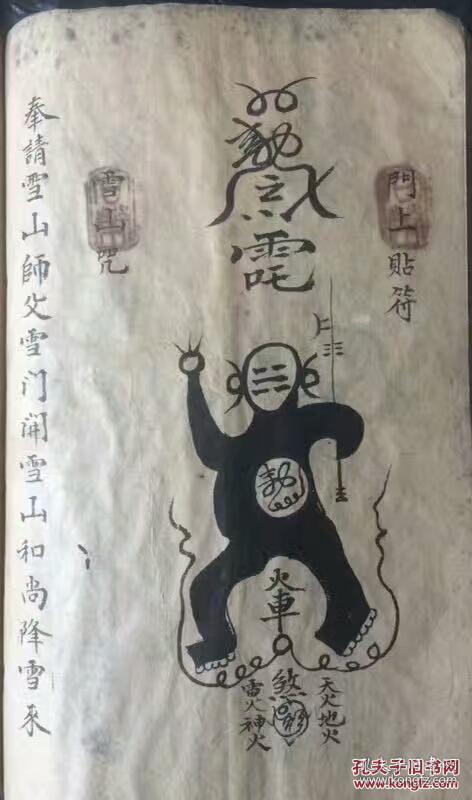 門上貼符
勅
雪山咒
火車
煞
天火地火
雷火神火
奉請雪山師父雪门開雪山和尚降雪來
孔夫子旧书网